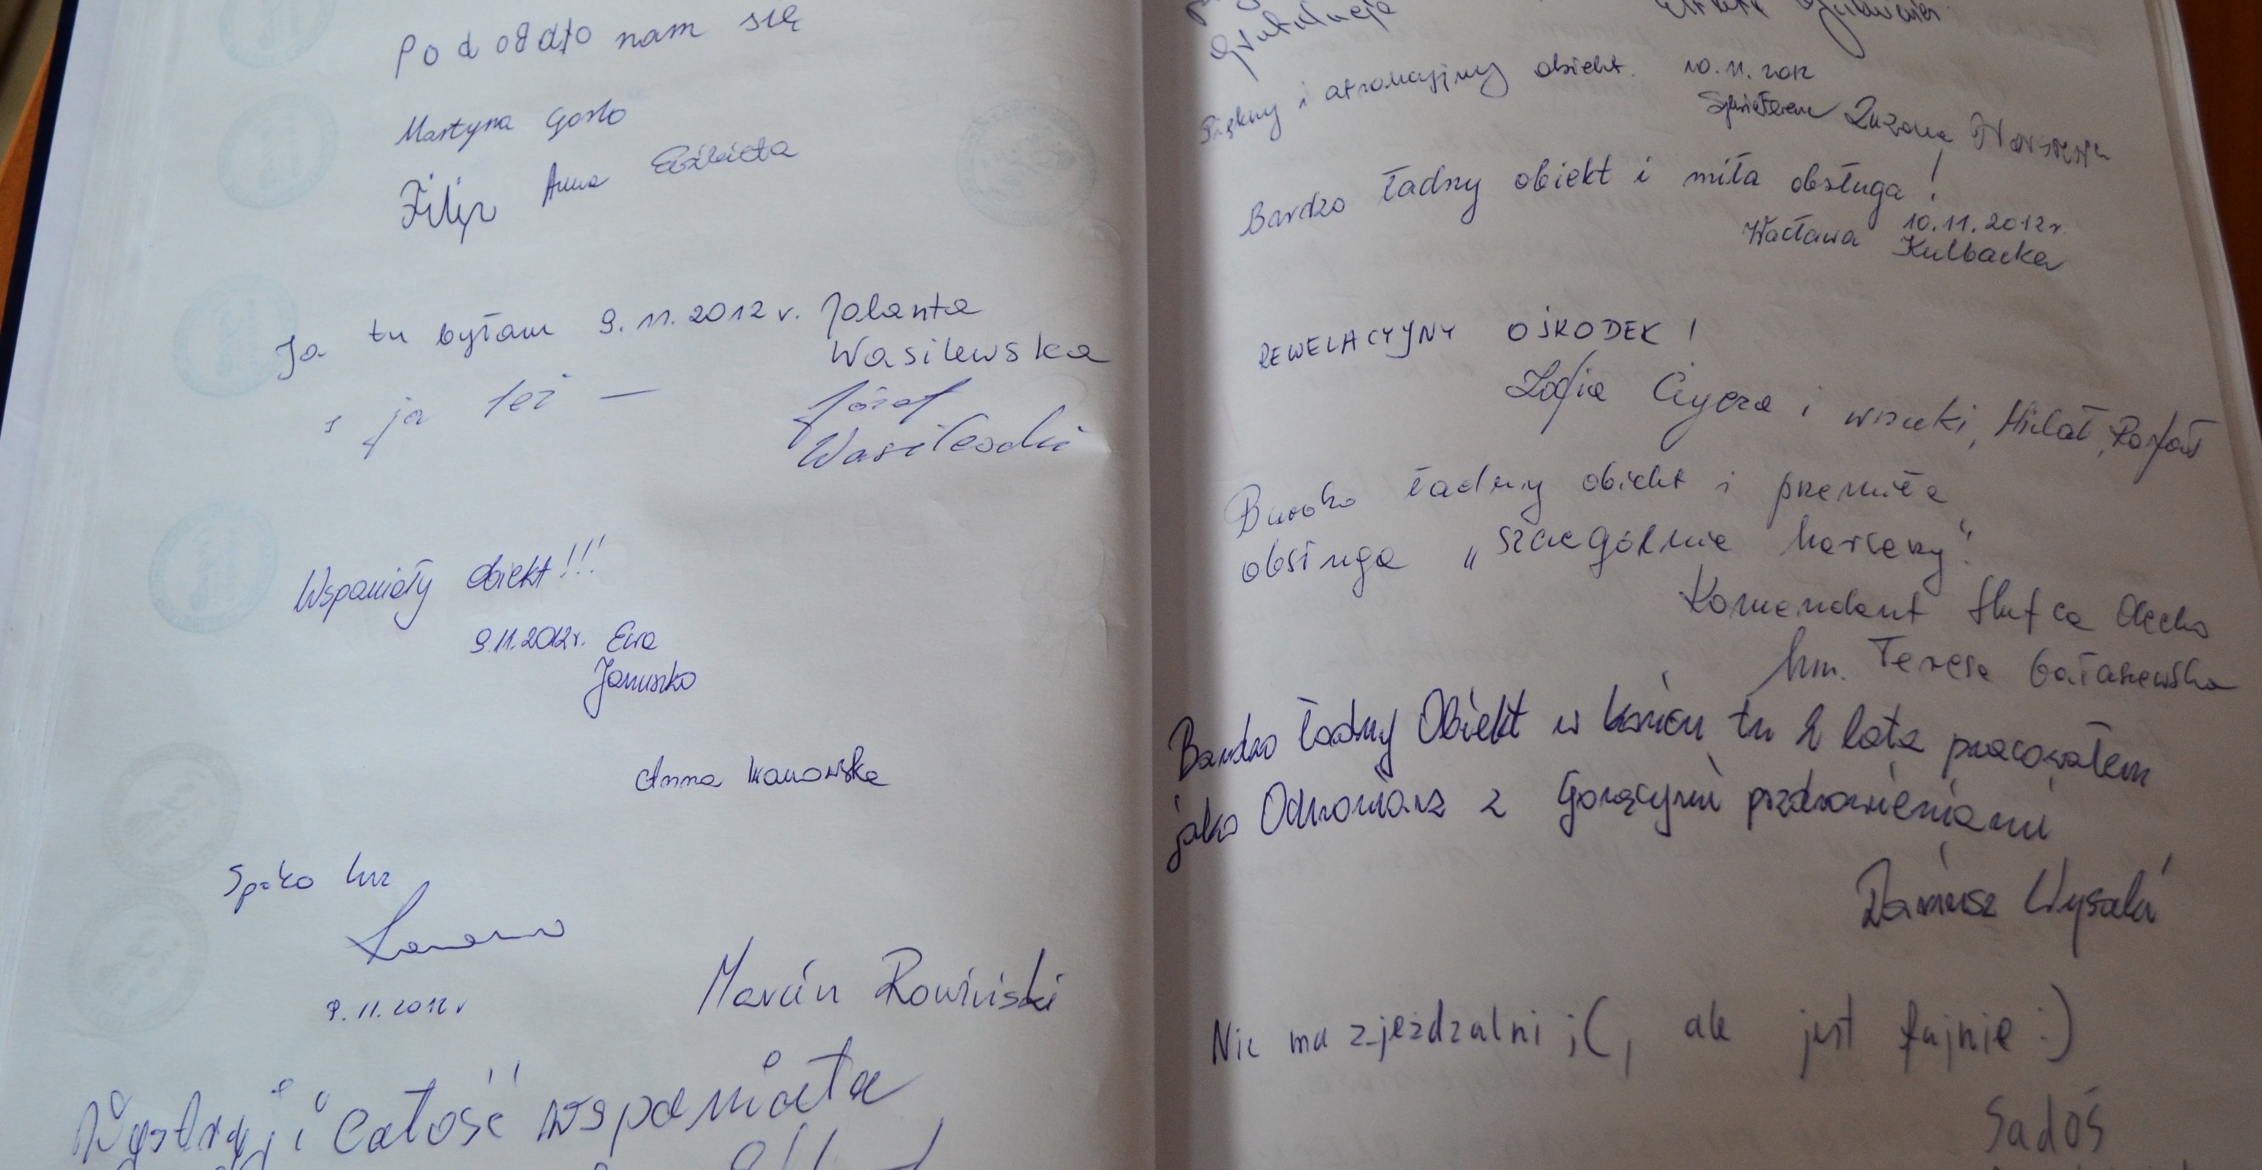 Podobało nam się
Martyna Gorlo
Filip Anna Elżbieta
Ja tu byłam 9.11.2012 r. Jolanta
Wasilewska
i ja też — Józef
Wasilewski
Wspaniały obiekt!!!
9.11.2012r. Ewa
Januszko
Anna Iwanowska
Spoko luz
9.11.2012 r
Marcin Rowiński
Wystrój i całość wspaniała
Gratulacje
Piękny i atrakcyjny obiekt. 10.11.2012
Zuzanna
Bardzo ładny obiekt i miła obsługa!
10.11.2012r.
Wacława Kulbacka
REWELACYJNY OŚRODEK!
Zofia i wnuki, Michał, Rafał
Bardzo ładny obiekt i przemiła
obsługa „szczególnie harcerzy“.
Komendant Hufca Olecko
hm. Teresa Gałaszewska
Bardzo ładny Obiekt w końcu tu 2 lata pracowałem
jako Ochroniarz z gorącymi pozdrowieniami
Dariusz Wysocki
Nie ma zjeżdzalni ;(, ale jest fajnie :)
Sadoś